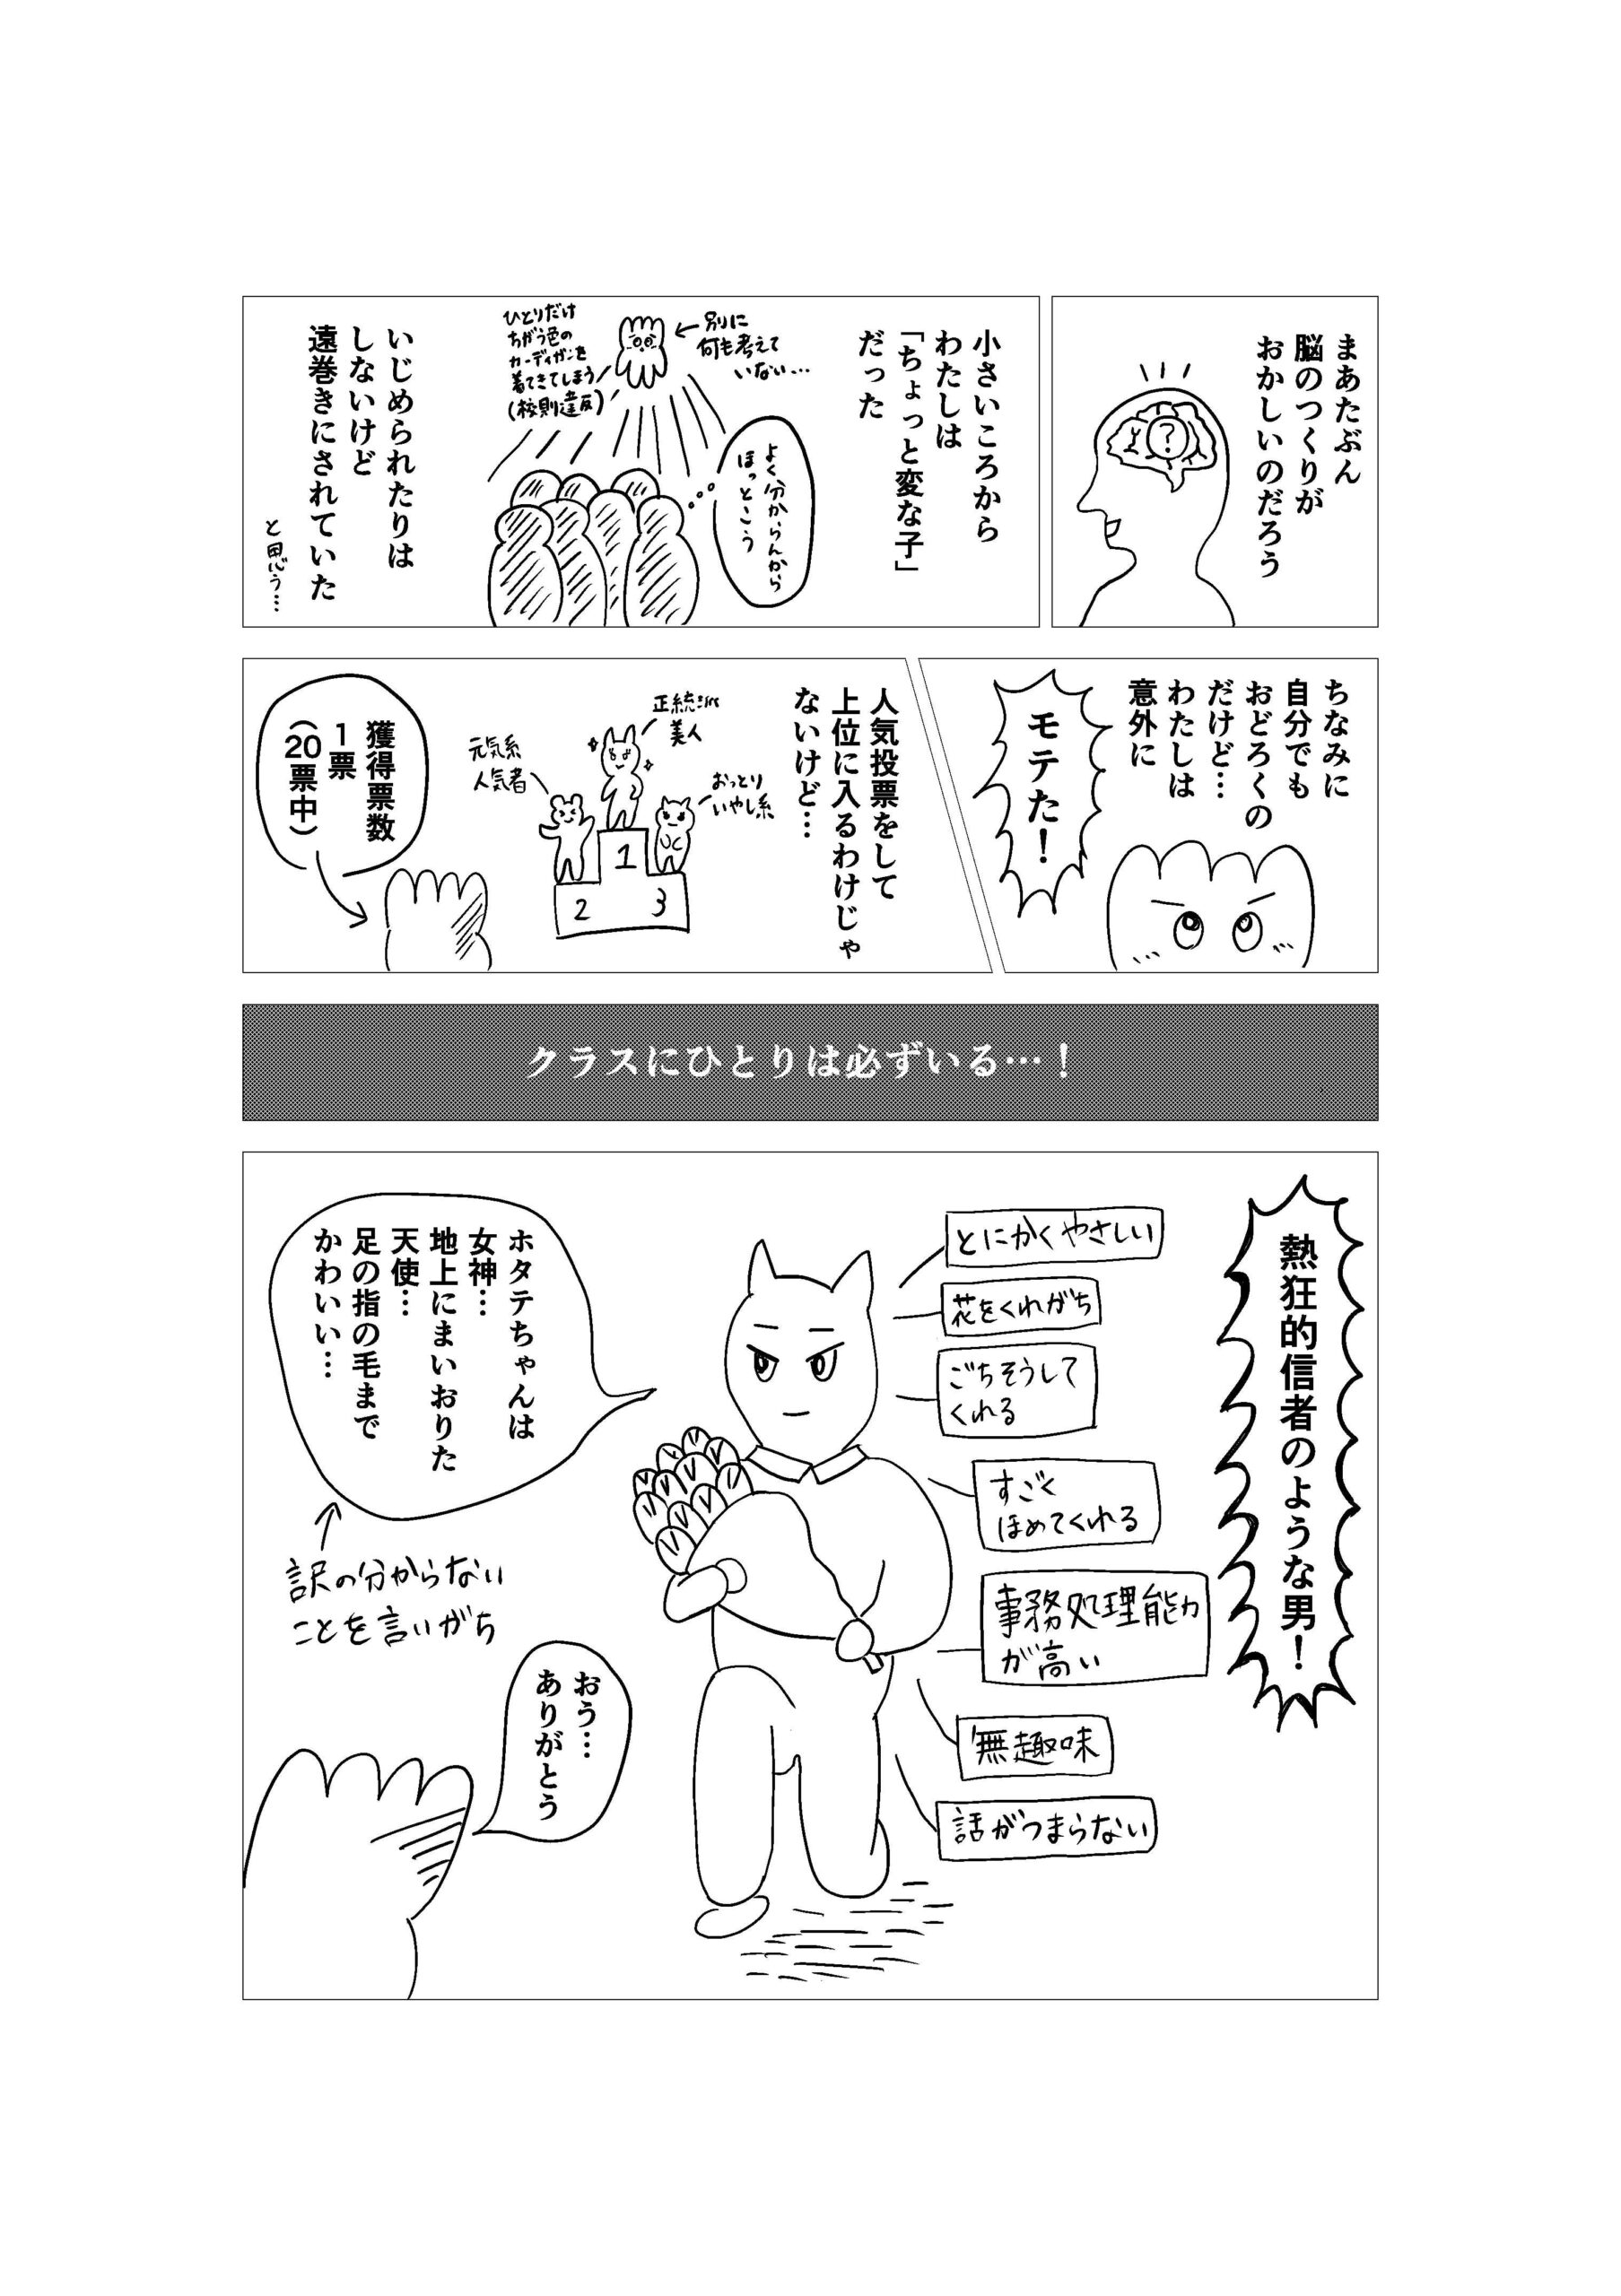 まあたぶん
脳のつくりが
おかしいのだろう
?
小さいころから
わたしは
「ちょっと変な子」
だった
別に
何も考えて
いない…
ひとりだけ
ちがう色の
カーディガンを
着てきてしまう
(校則違反)
よく分からんから
ほっとこう
いじめられたりは
しないけど
遠巻きにされていた
と思う…
ちなみに
自分でも
おどろくの
だけど…
わたしは
意外に
モテた!
人気投票をして
上位に入るわけじゃ
ないけど…
正統派
美人
おっとり
いやし系
元気系
人気者
1
2
3
獲得票数
1票
(20票中)
クラスにひとりは必ずいる…!
熱狂的信者のような男!
とにかくやさしい
花をくれがち
ごちそうして
くれる
すごく
ほめてくれる
事務処理能力
が高い
無趣味
話がつまらない
ホタテちゃんは
女神…
地上にまいおりた
天使…
足の指の毛まで
かわいい…
訳の分からない
ことを言いがち
おう…
ありがとう